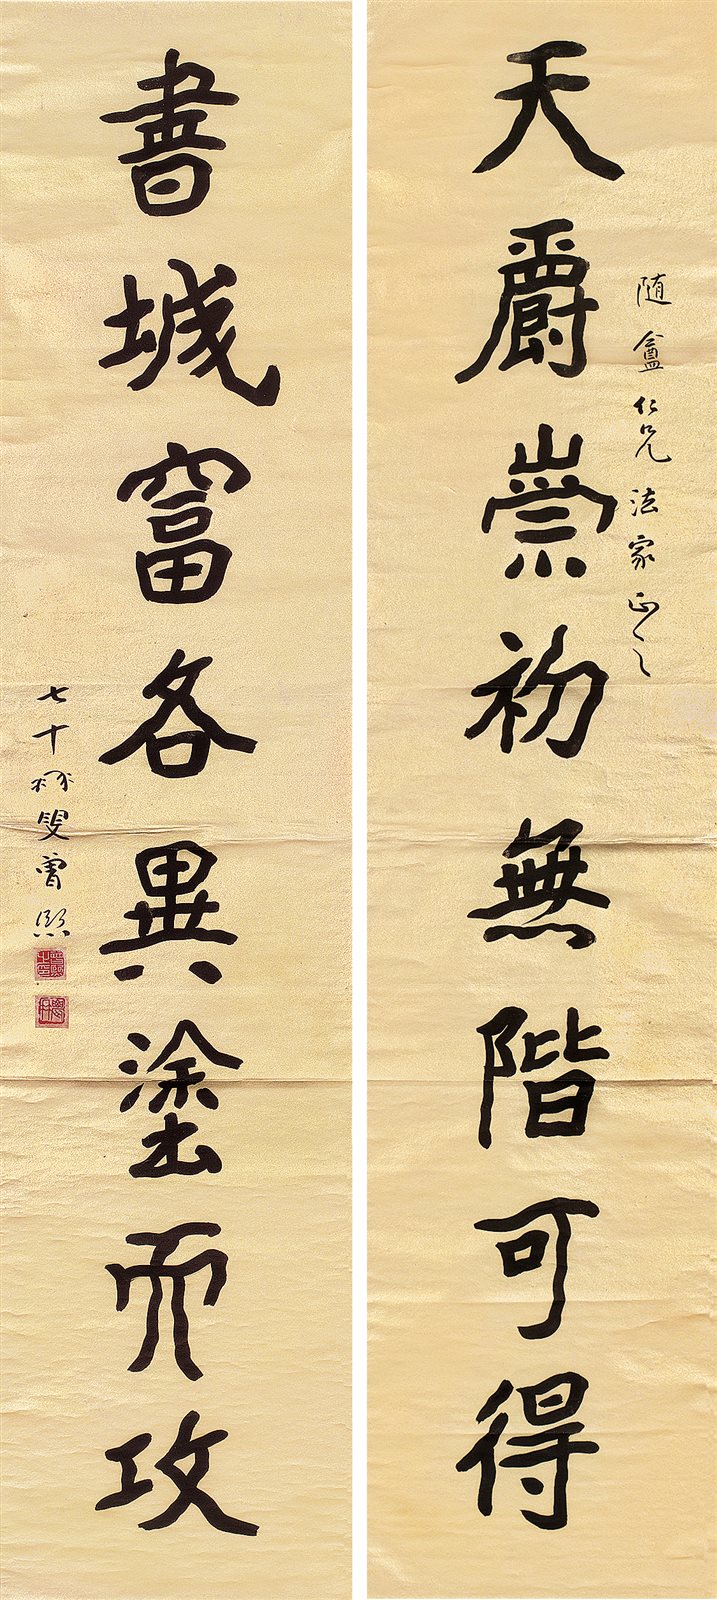 随盦仁兄法家正之
天爵崇初無階可得
書城富各異塗而攻
七十叟曾熙